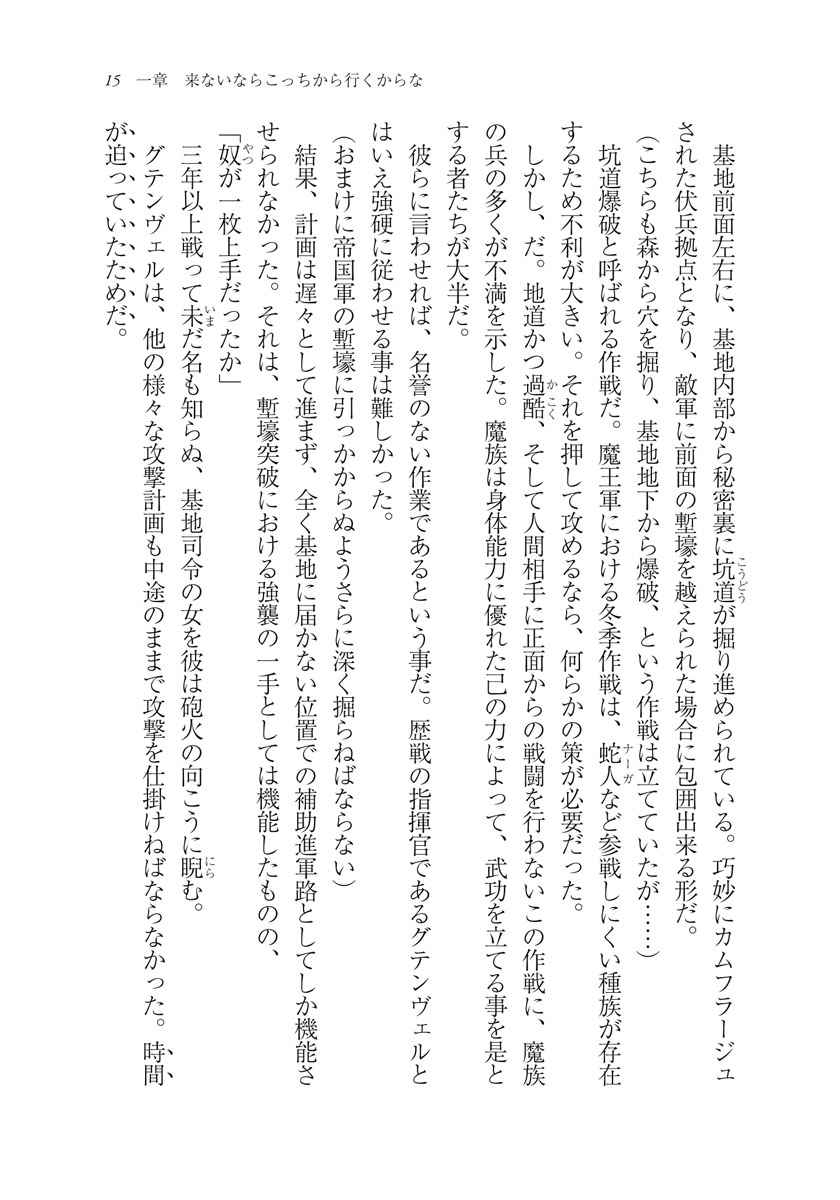 15　一章　来ないならこっちから行くからな
　基地前面左右に、基地内部から秘密裏に坑道が掘り進められている。巧妙にカムフラージュ
された伏兵拠点となり、敵軍に前面の塹壕を越えられた場合に包囲出来る形だ。
（こちらも森から穴を掘り、基地地下から爆破、という作戦は立てていたが……）
　坑道爆破と呼ばれる作戦だ。魔王軍における冬季作戦は、蛇人など参戦しにくい種族が存在
するため不利が大きい。それを押して攻めるなら、何らかの策が必要だった。
　しかし、だ。地道かつ過酷、そして人間相手に正面からの戦闘を行わないこの作戦に、魔族
の兵の多くが不満を示した。魔族は身体能力に優れた己の力によって、武功を立てる事を是と
する者たちが大半だ。
　彼らに言わせれば、名誉のない作業であるという事だ。歴戦の指揮官であるグテンヴェルと
はいえ強硬に従わせる事は難しかった。
（おまけに帝国軍の塹壕に引っかからぬようさらに深く掘らねばならない）
　結果、計画は遅々として進まず、全く基地に届かない位置での補助進軍路としてしか機能さ
せられなかった。それは、塹壕突破における強襲の一手としては機能したものの、
「奴が一枚上手だったか」
　三年以上戦って未だ名も知らぬ、基地司令の女を彼は砲火の向こうに睨む。
　グテンヴェルは、他の様々な攻撃計画も中途のままで攻撃を仕掛けねばならなかった。時間
が迫っていたためだ。